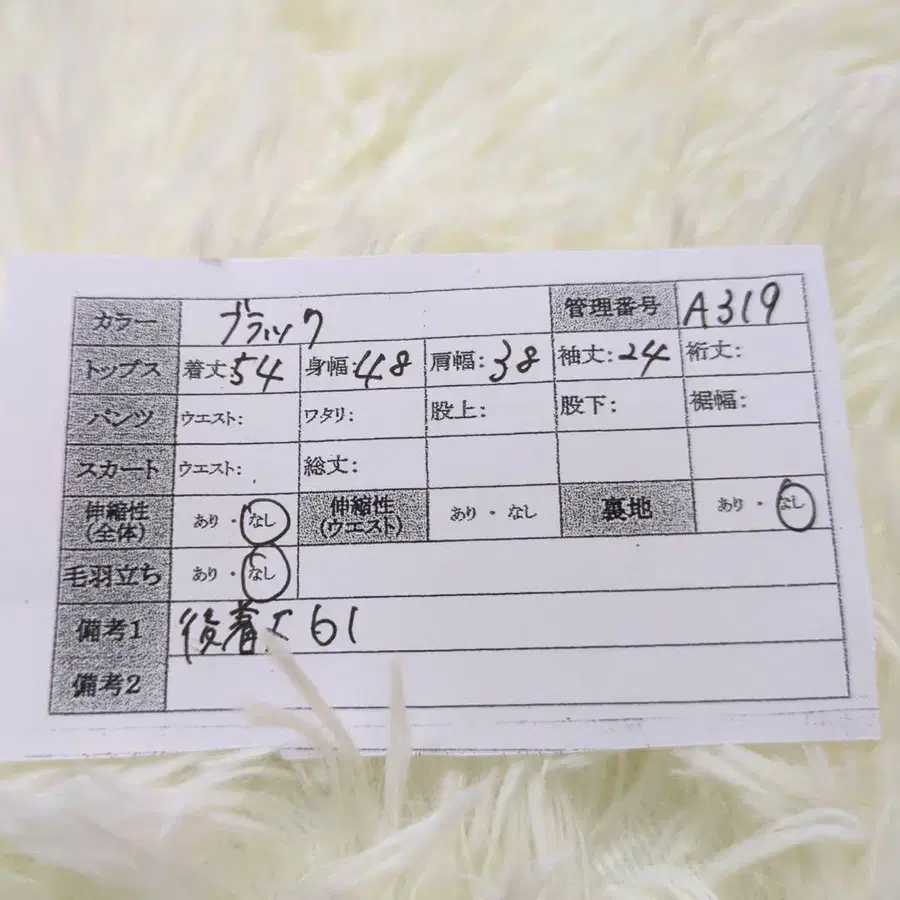 カラー ブラック 管理番号 A319
トップス 着丈:54 身幅:48 肩幅:38 袖丈:24 裄丈:
パンツ ウエスト: ワタリ: 股上: 股下: 裾幅:
スカート ウエスト: 総丈:
伸縮性(全体) あり・なし 伸縮性(ウエスト) あり・なし 裏地 あり・なし
毛羽立ち あり・なし
備考1 後着丈 61
備考2